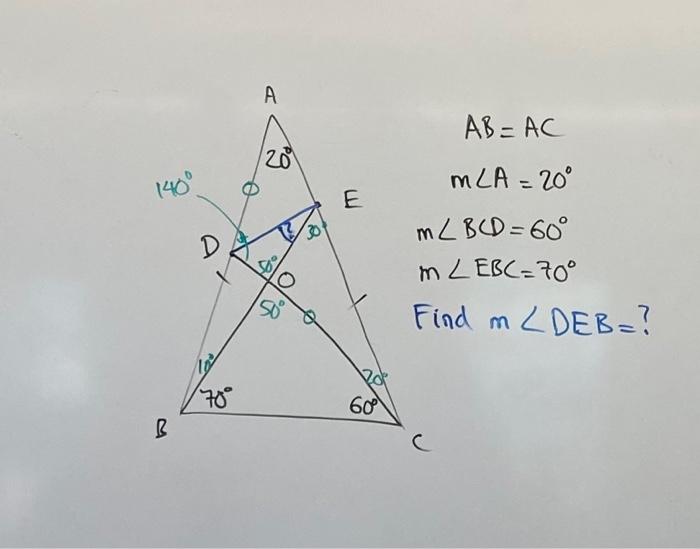 A
20°
140°
E
D
?
30°
50°
O
50°
10°
70°
20°
60°
B
C
AB = AC
m∠A = 20°
m∠BCD = 60°
m∠EBC = 70°
Find m∠DEB = ?